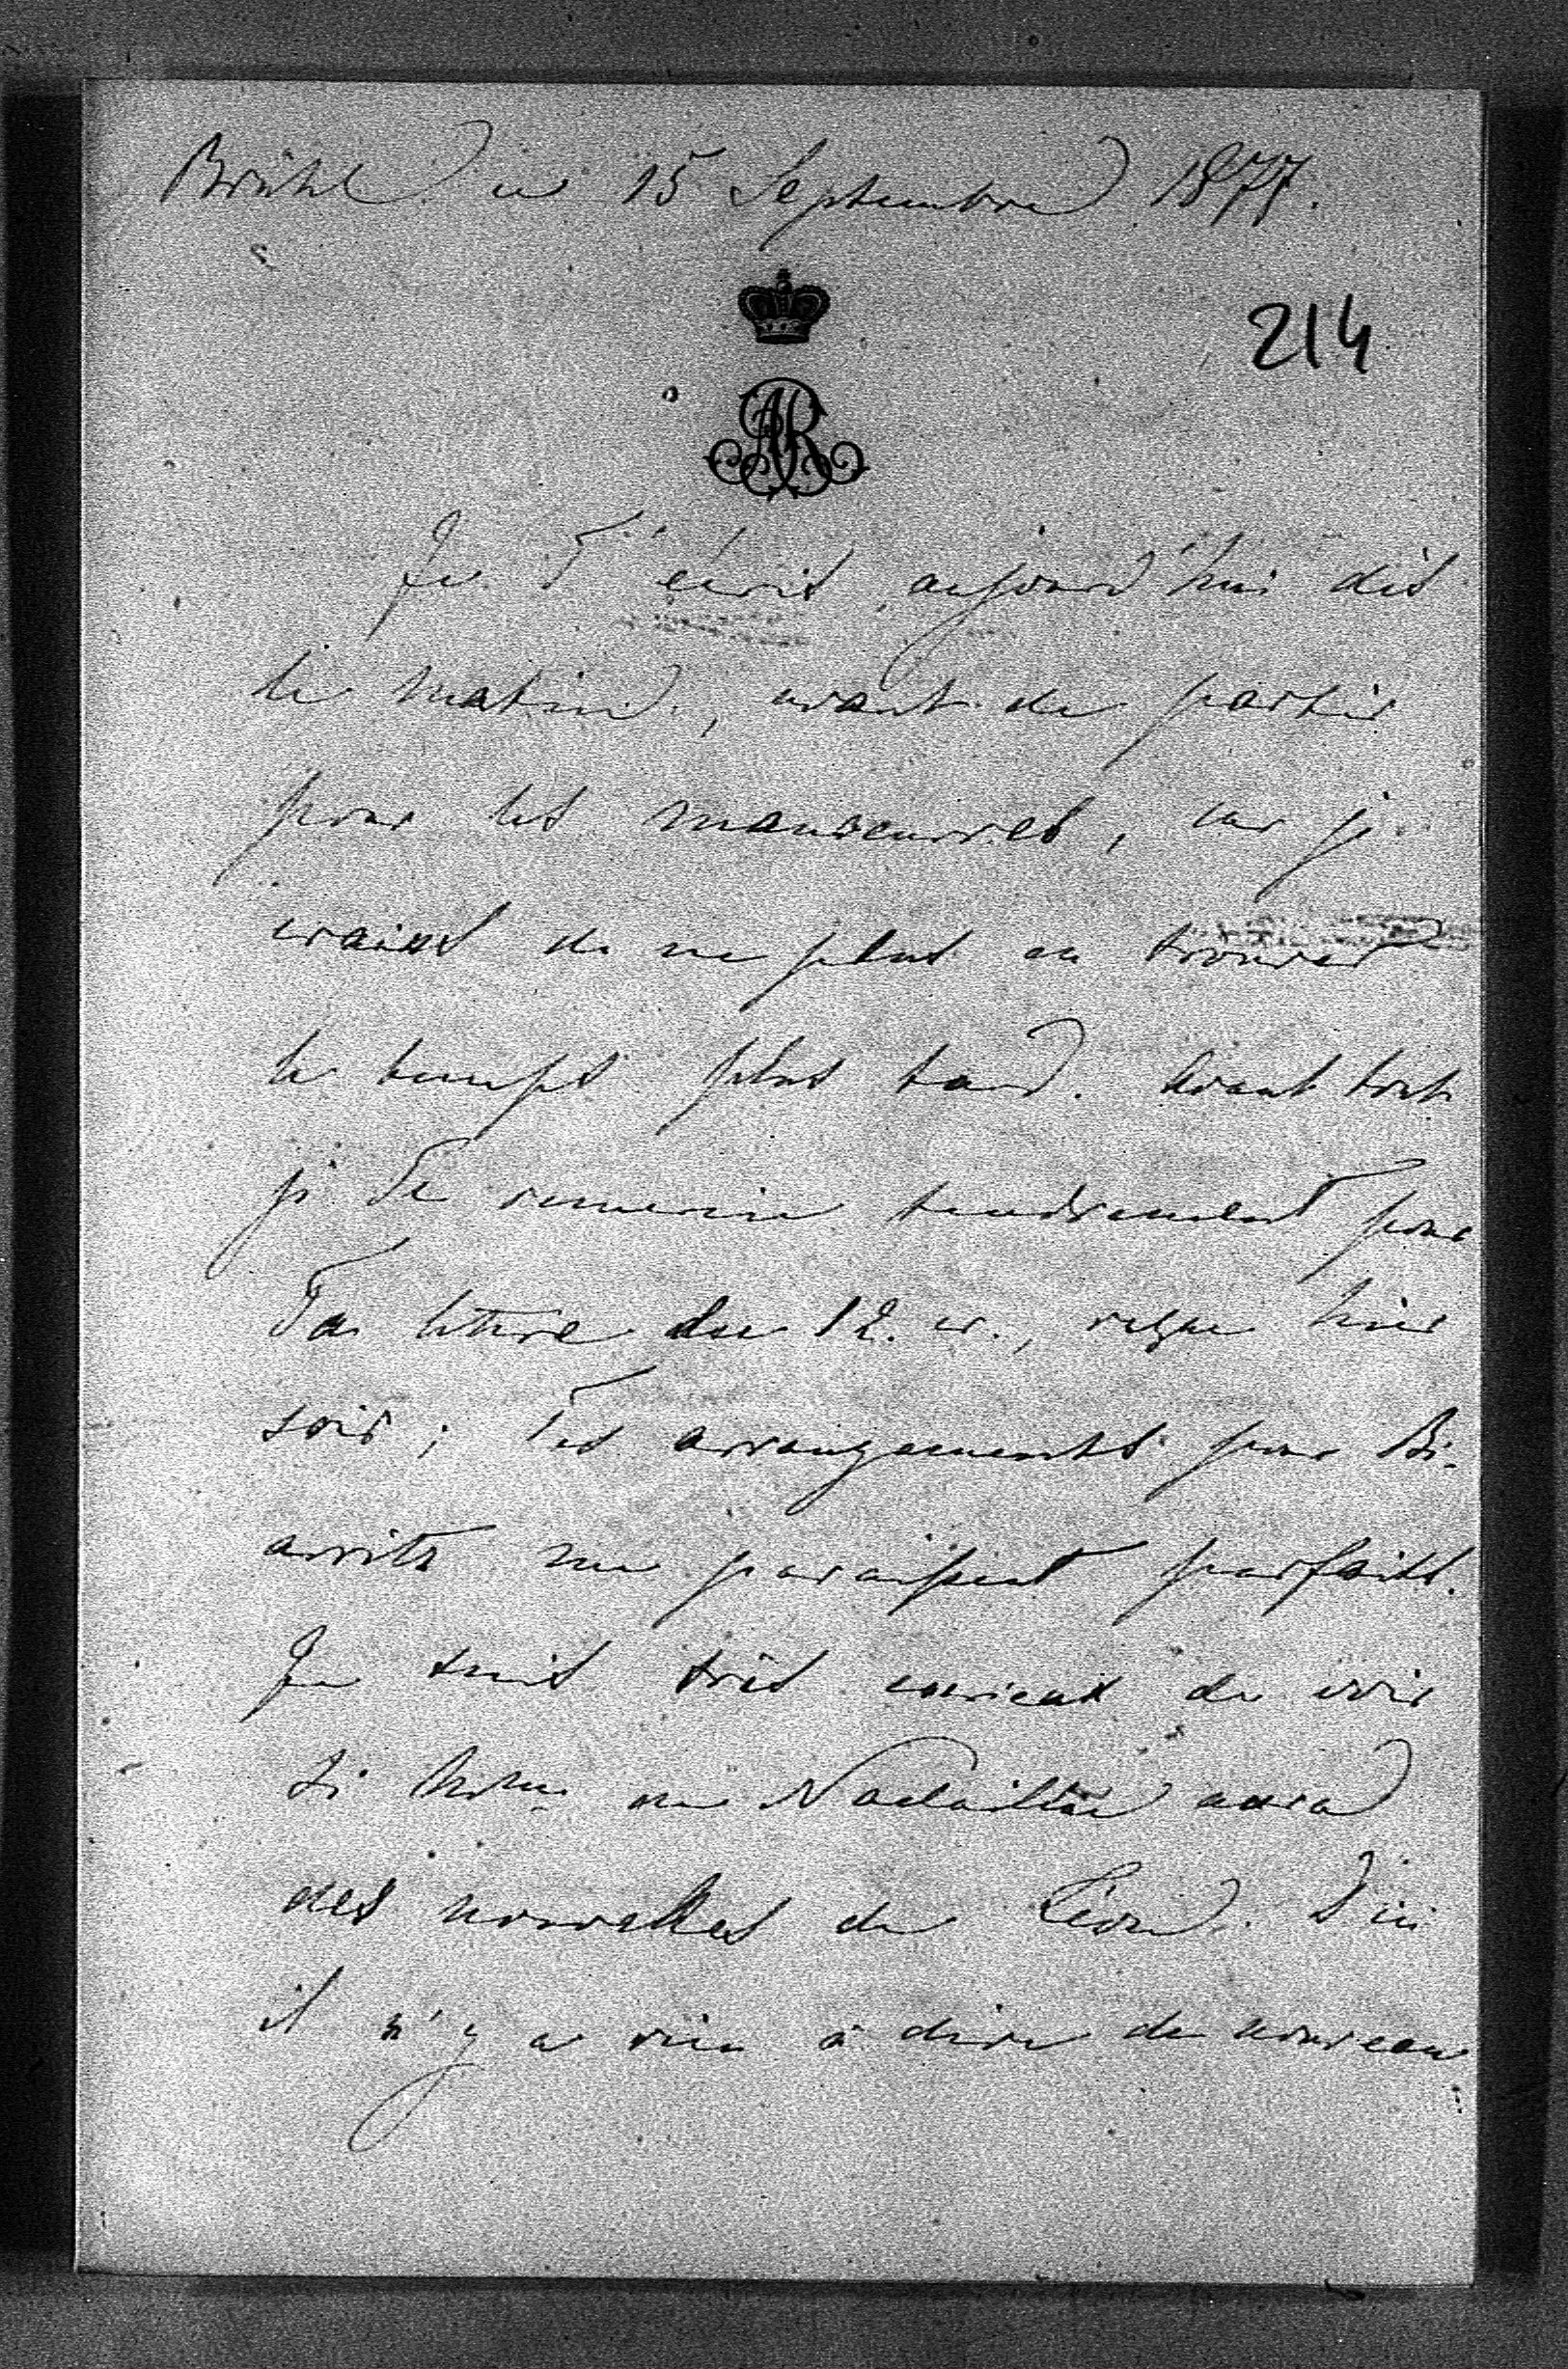 Brühl ce 15 Septembre 1877.
214
AR
Je T'écris aujourd'hui dès
le matin, avant de partir
pour les manoeuvres, car je
crains de ne plus en trouver
le temps plus tard. Avant tout
je Te remercie tendrement pour
Ta lettre du 12. cr., reçue hier
soir; Tes arrangements pour Bi-
arritz me paraissent parfaits.
Je suis très curieux de voir
si Mme de Nadaillac aura
des nouvelles de Léon. D'ici
il n'y a rien à dire de nouveau